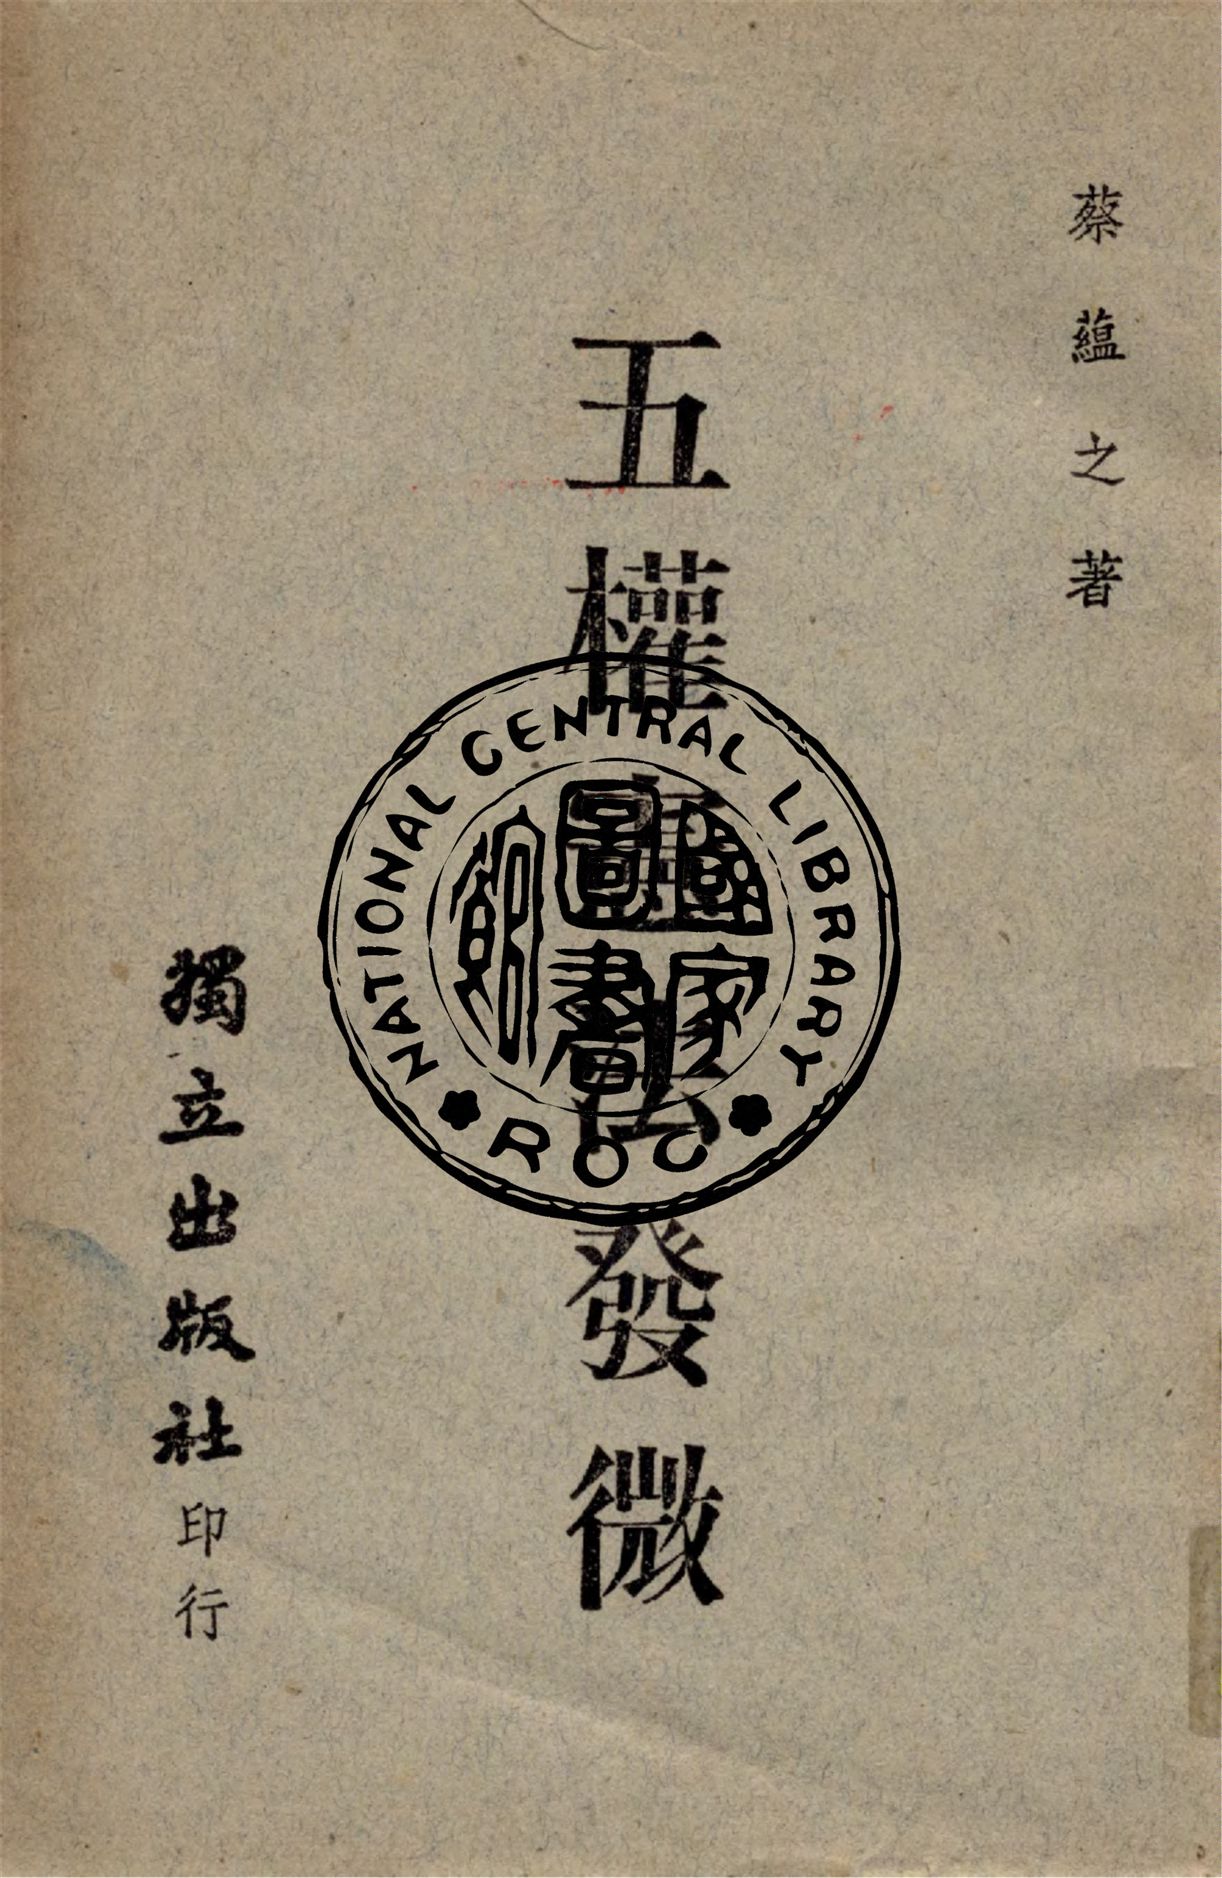 蔡蘊之著
五權憲法發微
獨立出版社印行
NATIONAL CENTRAL LIBRARY
國家圖書館
ROC